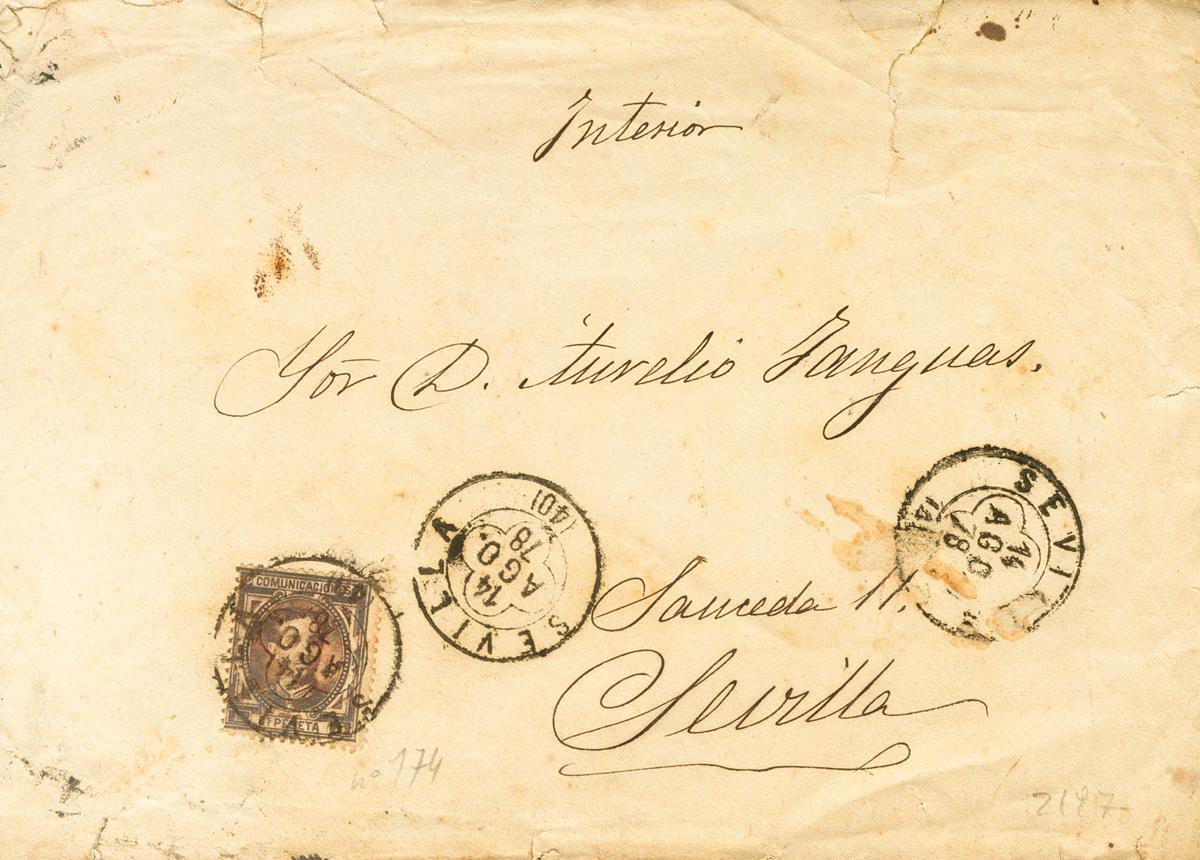 Interior
Sōr D. Aurelio Yanguas.
SEVILLA
14
AGO.
78
(40)
SEVI
14
AGO
78
COMUNICACIONES
14
AGO
78
PESETA
Sauceda 11.
Sevilla
nº 174
2187